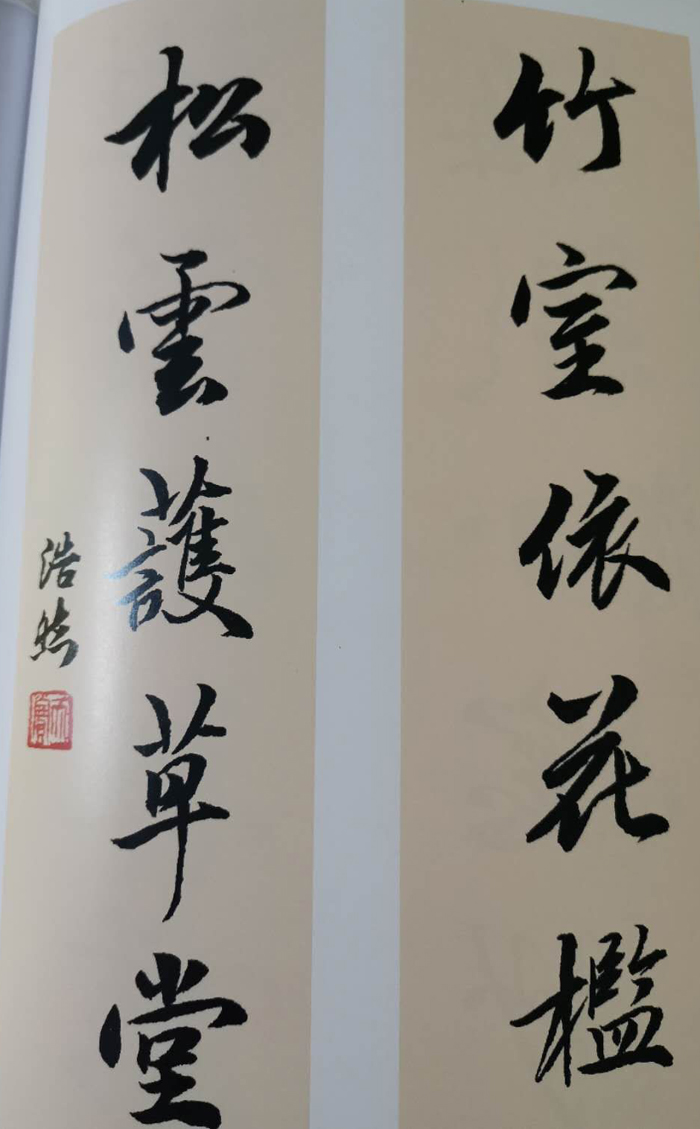 竹室依花檻
松雲護草堂
浩然